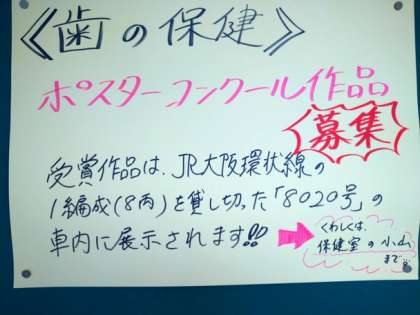 《歯の保健》
ポスターコンクール作品
募集
受賞作品は、JR大阪環状線の
1編成(8両)を貸し切った「8020号」の
車内に展示されます!!
くわしくは、
保健室の小山
まで